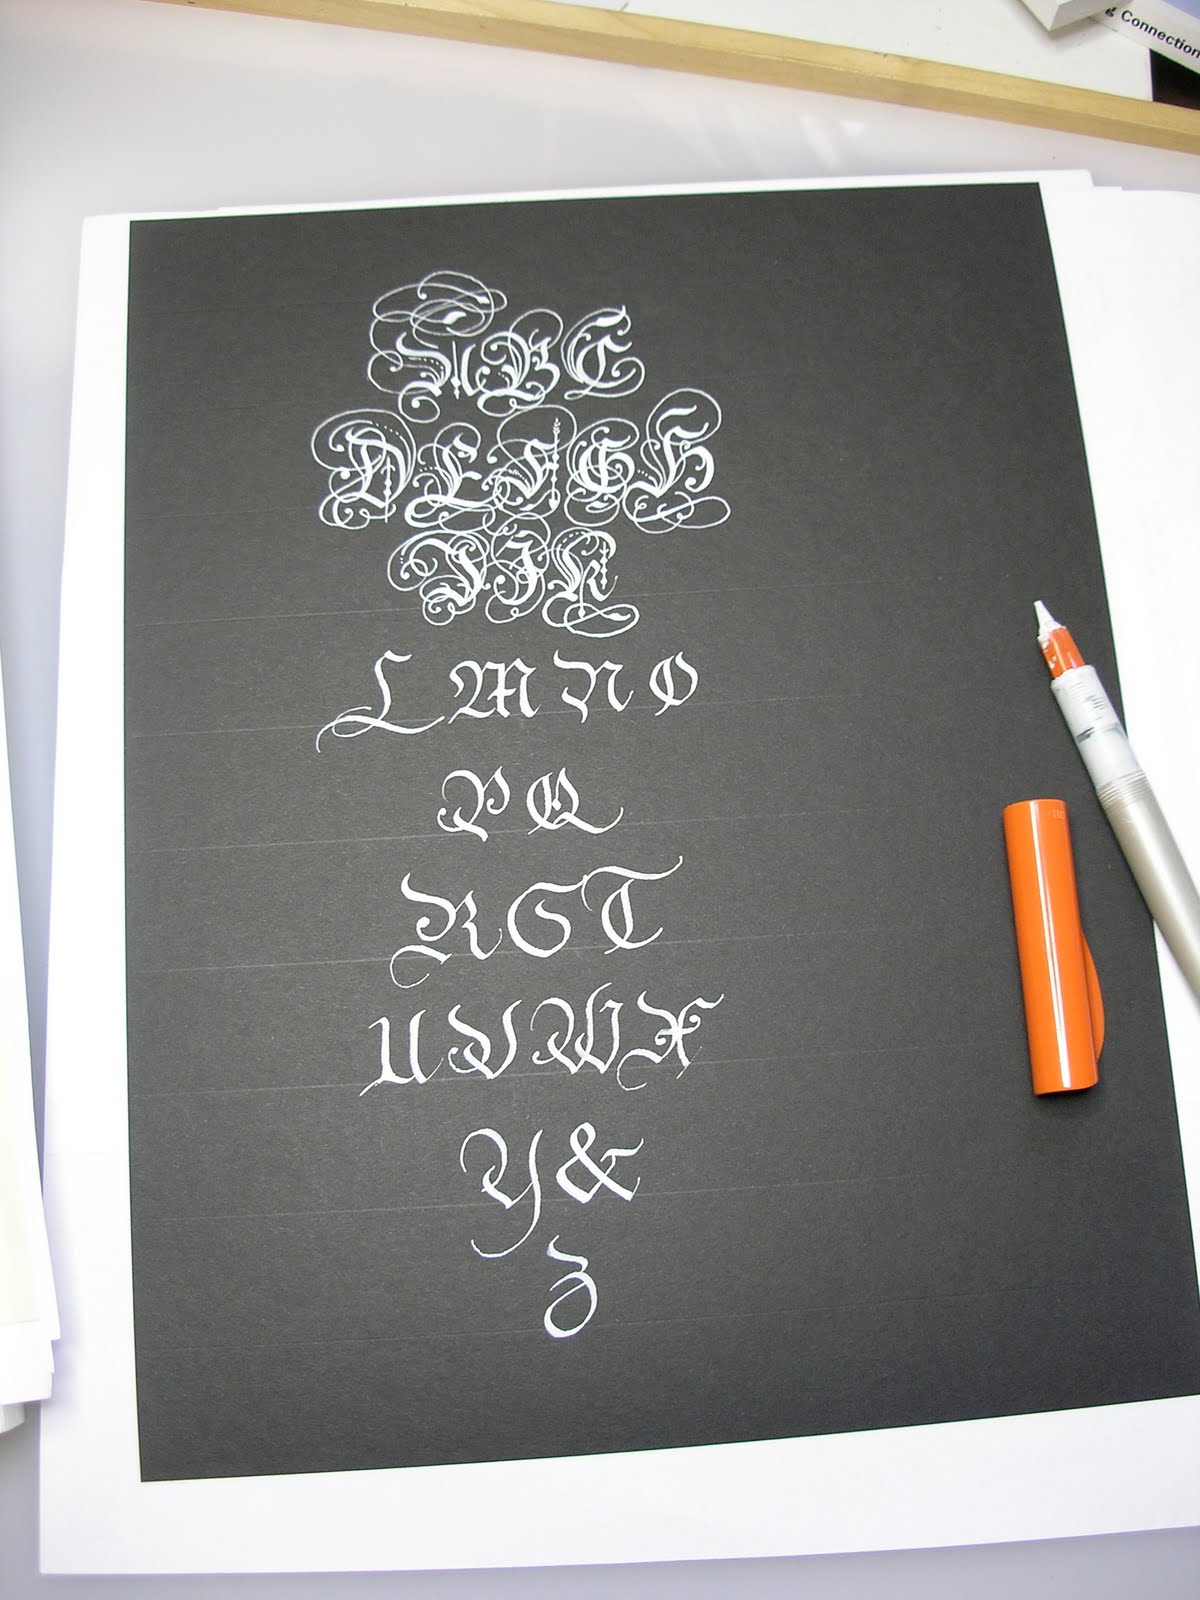 g Connection
ABC
DEFGH
IJK
LMNO
PQ
RST
UVWX
Y&
Z